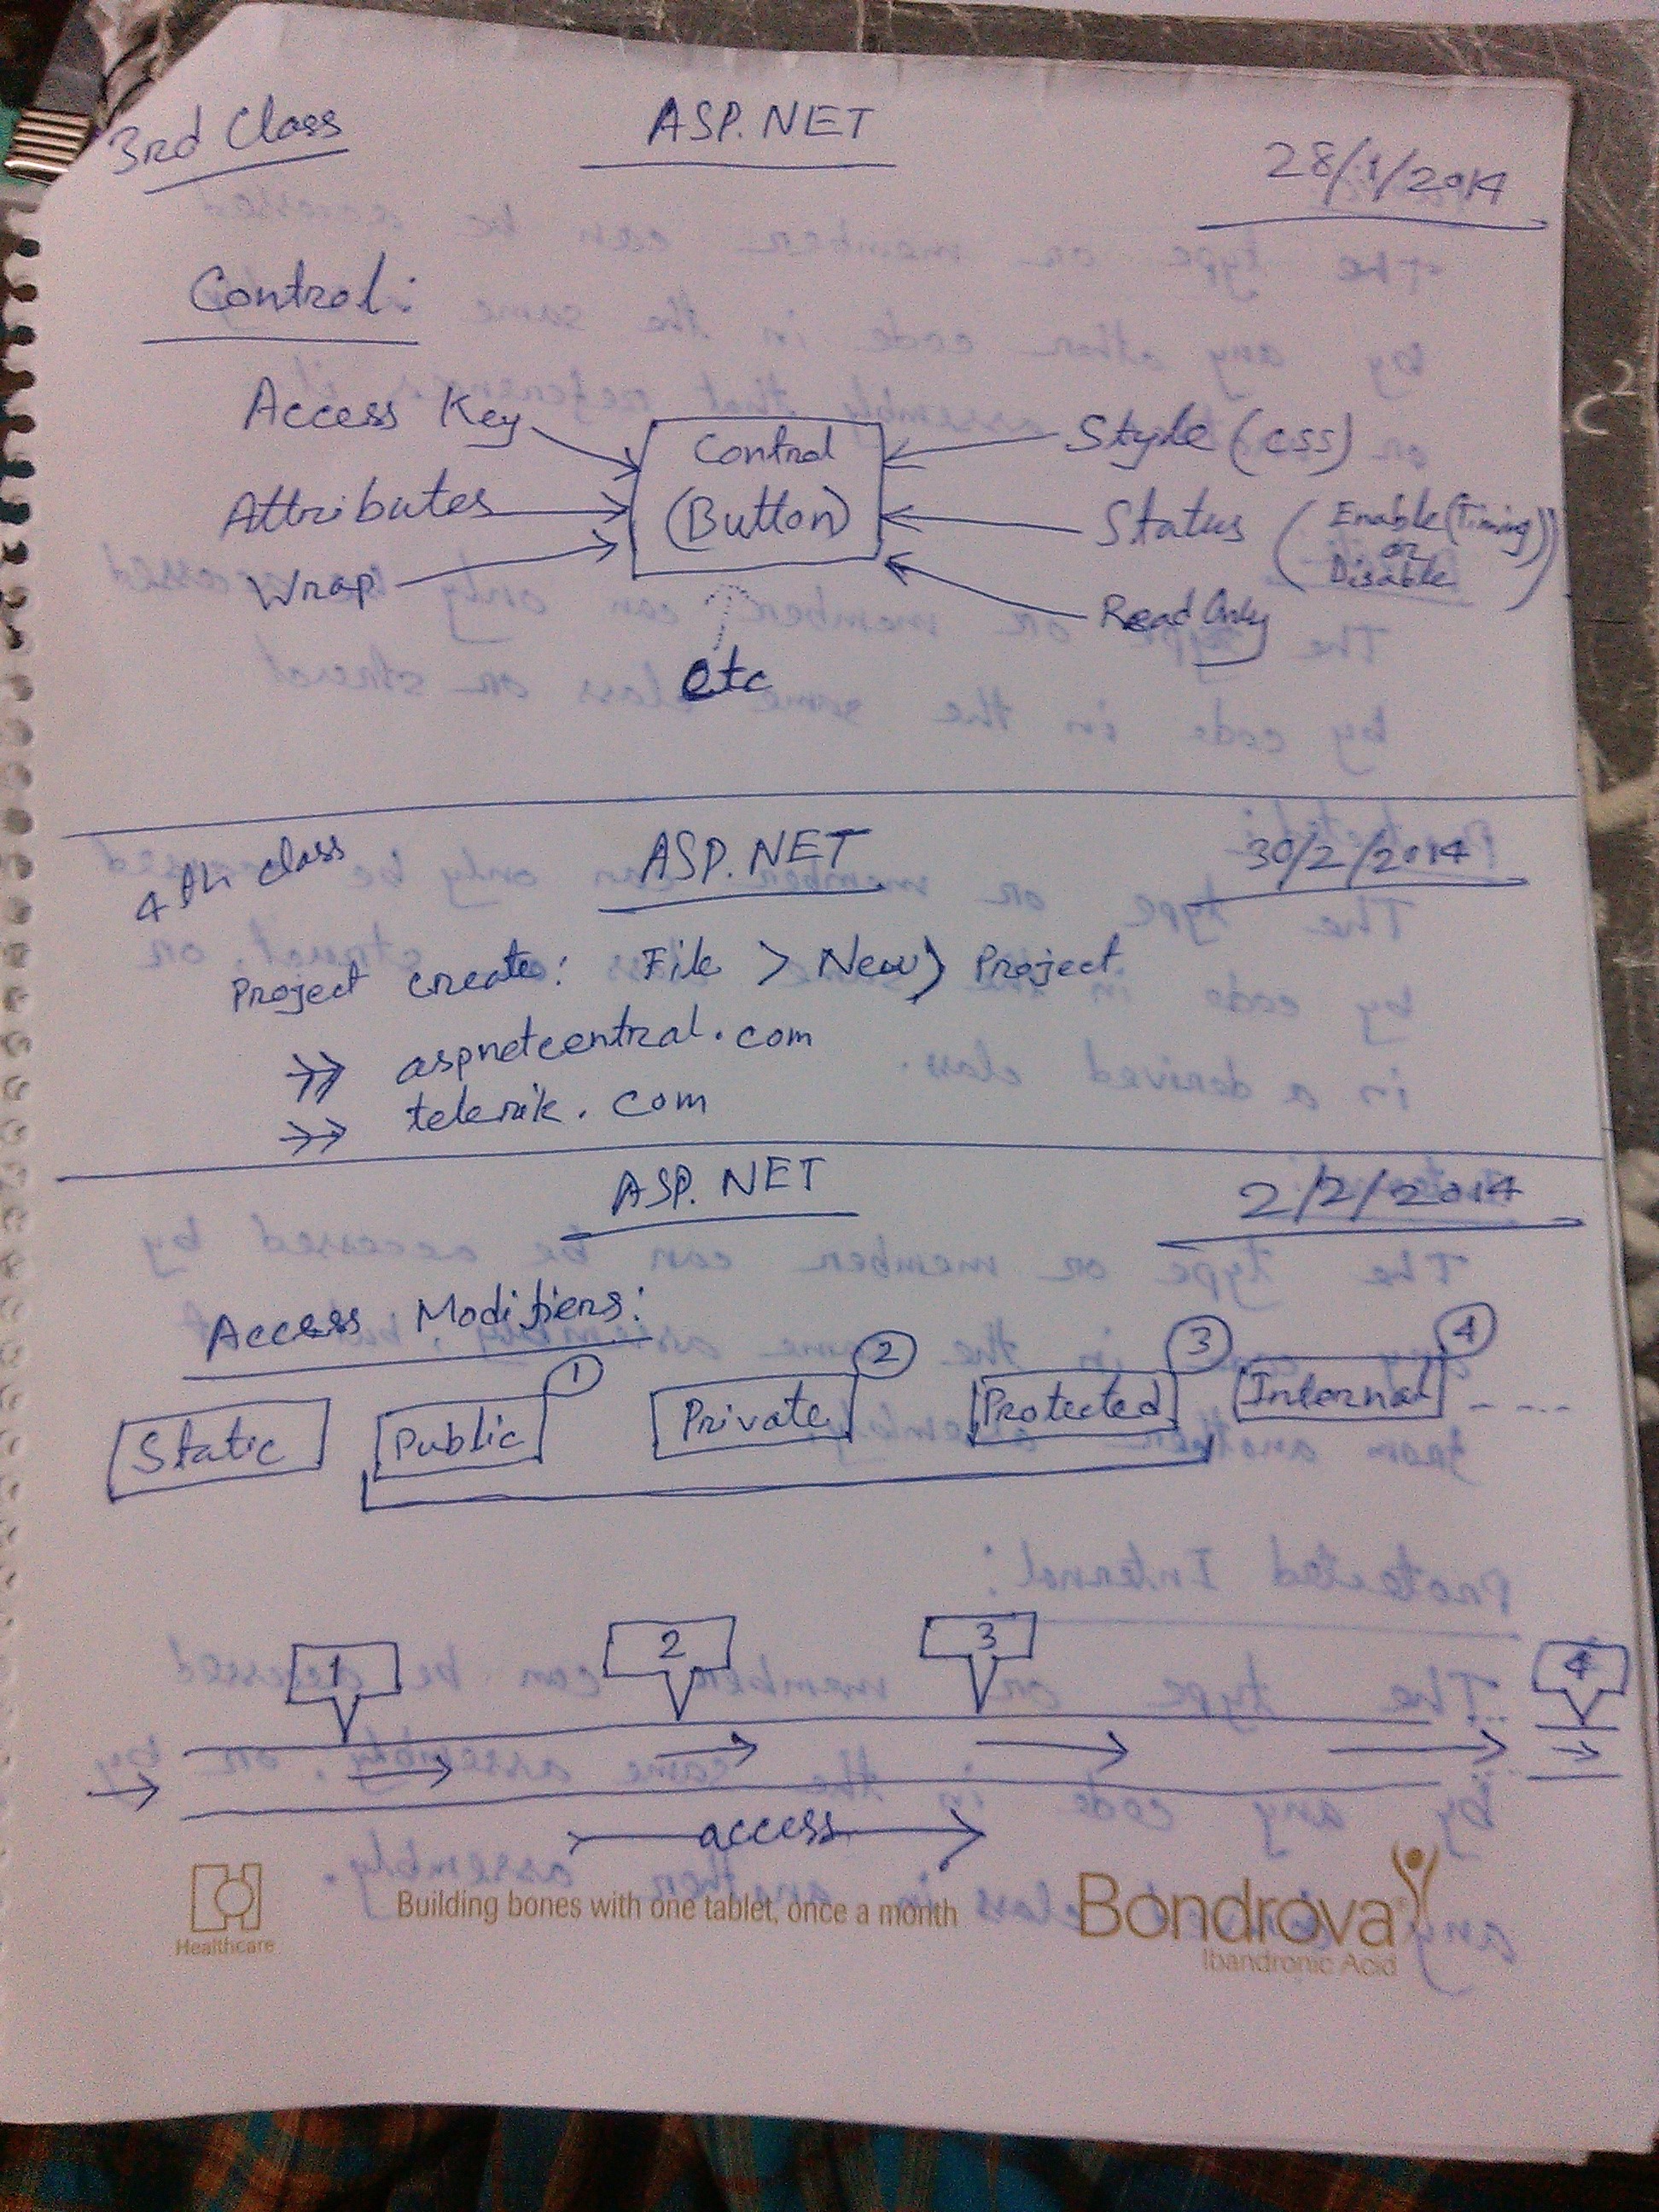 3rd Class ASP.NET 28/1/2014
Control:
Access Key
Attributes
Wrap
Control
(Button)
etc
Style (css)
Status (Enable (Timing)
or
Disable)
Read Only
4th class ASP.NET 30/2/2014
Project create: File > New > Project
>> aspnetcentral.com
>> telerik.com
ASP.NET 2/2/2014
Access Modifiers:
Static Public 1 Private 2 Protected 3 Internal 4 ----
1 2 3 4
access
Healthcare
Building bones with one tablet, once a month
Bondrova
Ibandronic Acid
C2